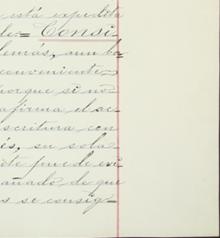 está expedita
de = Consi
demás, aun ha
conveniente
porque si no
afirma el se
scritura con
és, su sola
puede evi
añado de que
s se consig=